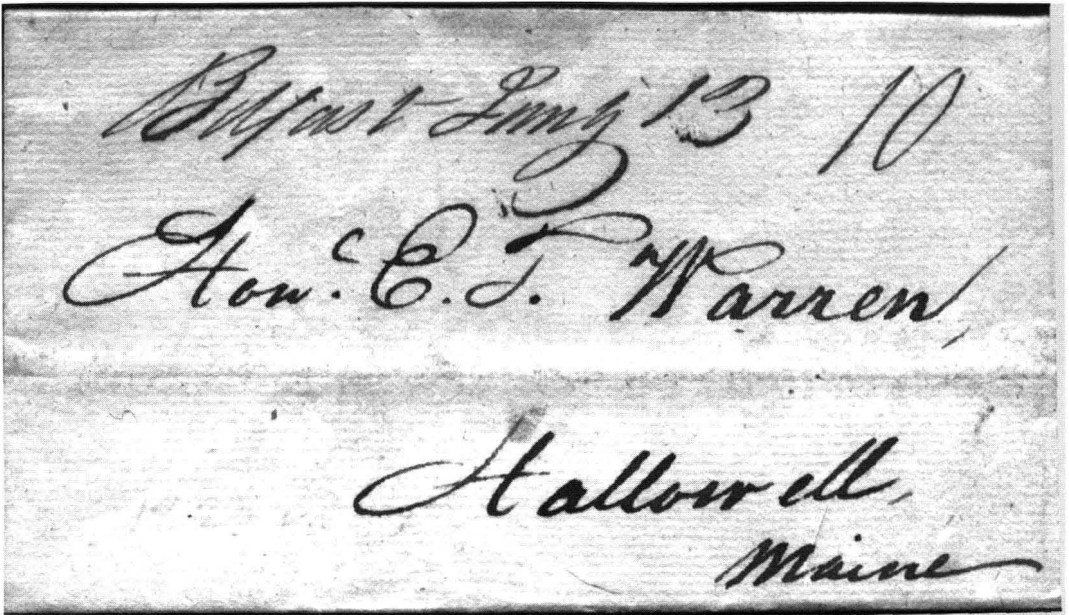 Belfast Jany 13 10
Honᶜ. E. T. Warren,
Hallowell,
Maine